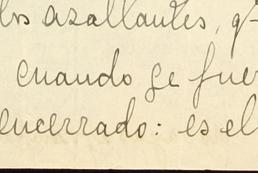 los asaltantes, q-
cuando se fuer
encerrado: es el